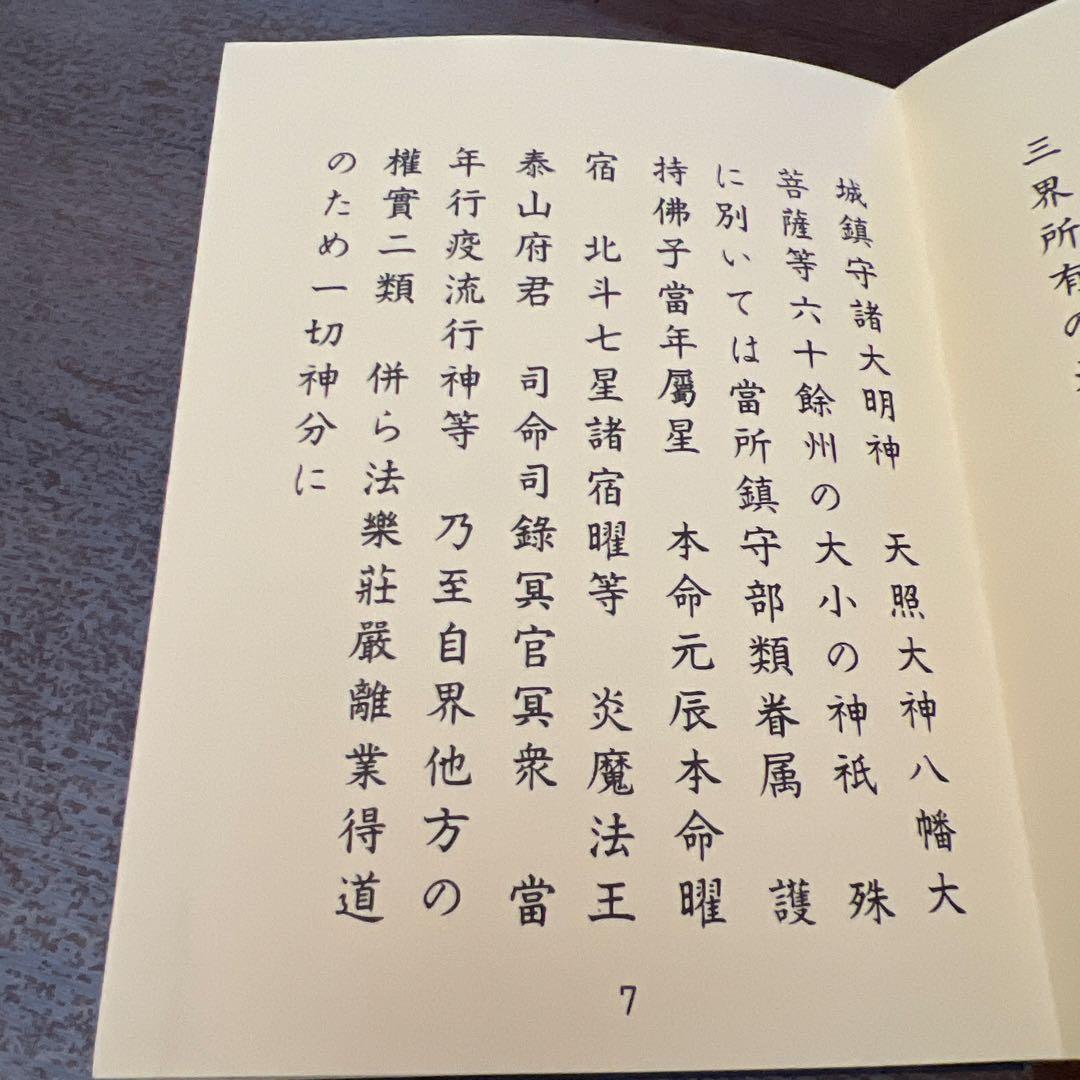 三界所有の
城鎮守諸大明神　天照大神八幡大
菩薩等六十餘州の大小の神祇　殊
に別いては當所鎮守部類眷属　護
持佛子當年屬星　本命元辰本命曜
宿　北斗七星諸宿曜等　炎魔法王
泰山府君　司命司錄冥官冥衆　當
年行疫流行神等　乃至自界他方の
權實二類　併ら法樂莊嚴離業得道
のため一切神分に
7